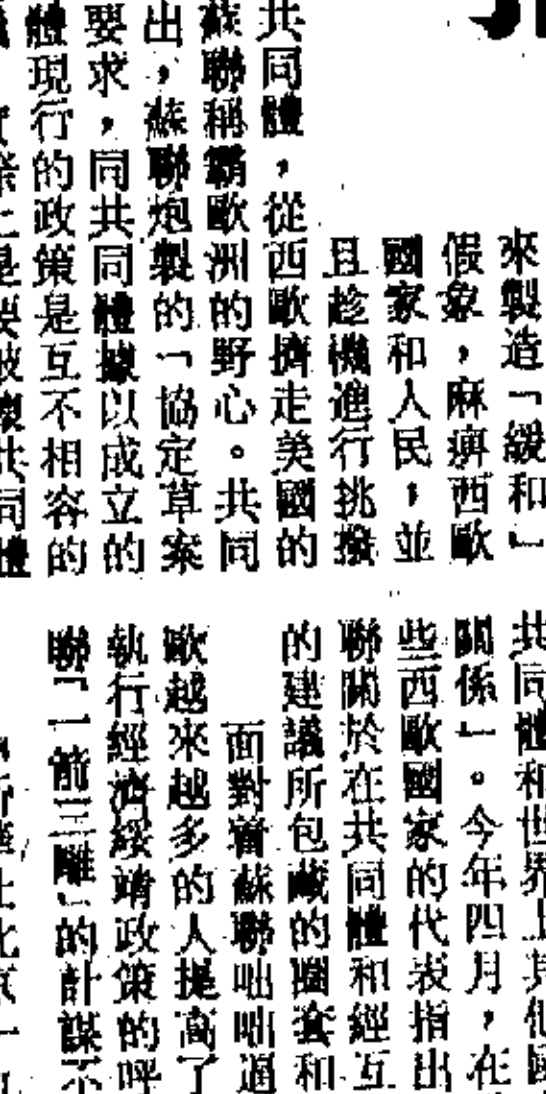 來製造「緩和」
假象，麻痹西歐
國家和人民，並
且趁機進行挑撥
共同體，從西歐擠走美國的
蘇聯稱霸歐洲的野心。共同
出，蘇聯炮製的「協定草案
要求，同共同體據以成立的
體現行的政策是互不相容的
上是要破壞共同體
共同體和世界上其他國
關係」。今年四月，在
些西歐國家的代表指出
聯關於在共同體和經互
的建議所包藏的圈套和
面對着蘇聯咄咄逼
歐越來越多的人提高了
執行經濟綏靖政策的呼
聯「一箭三雕」的計謀不